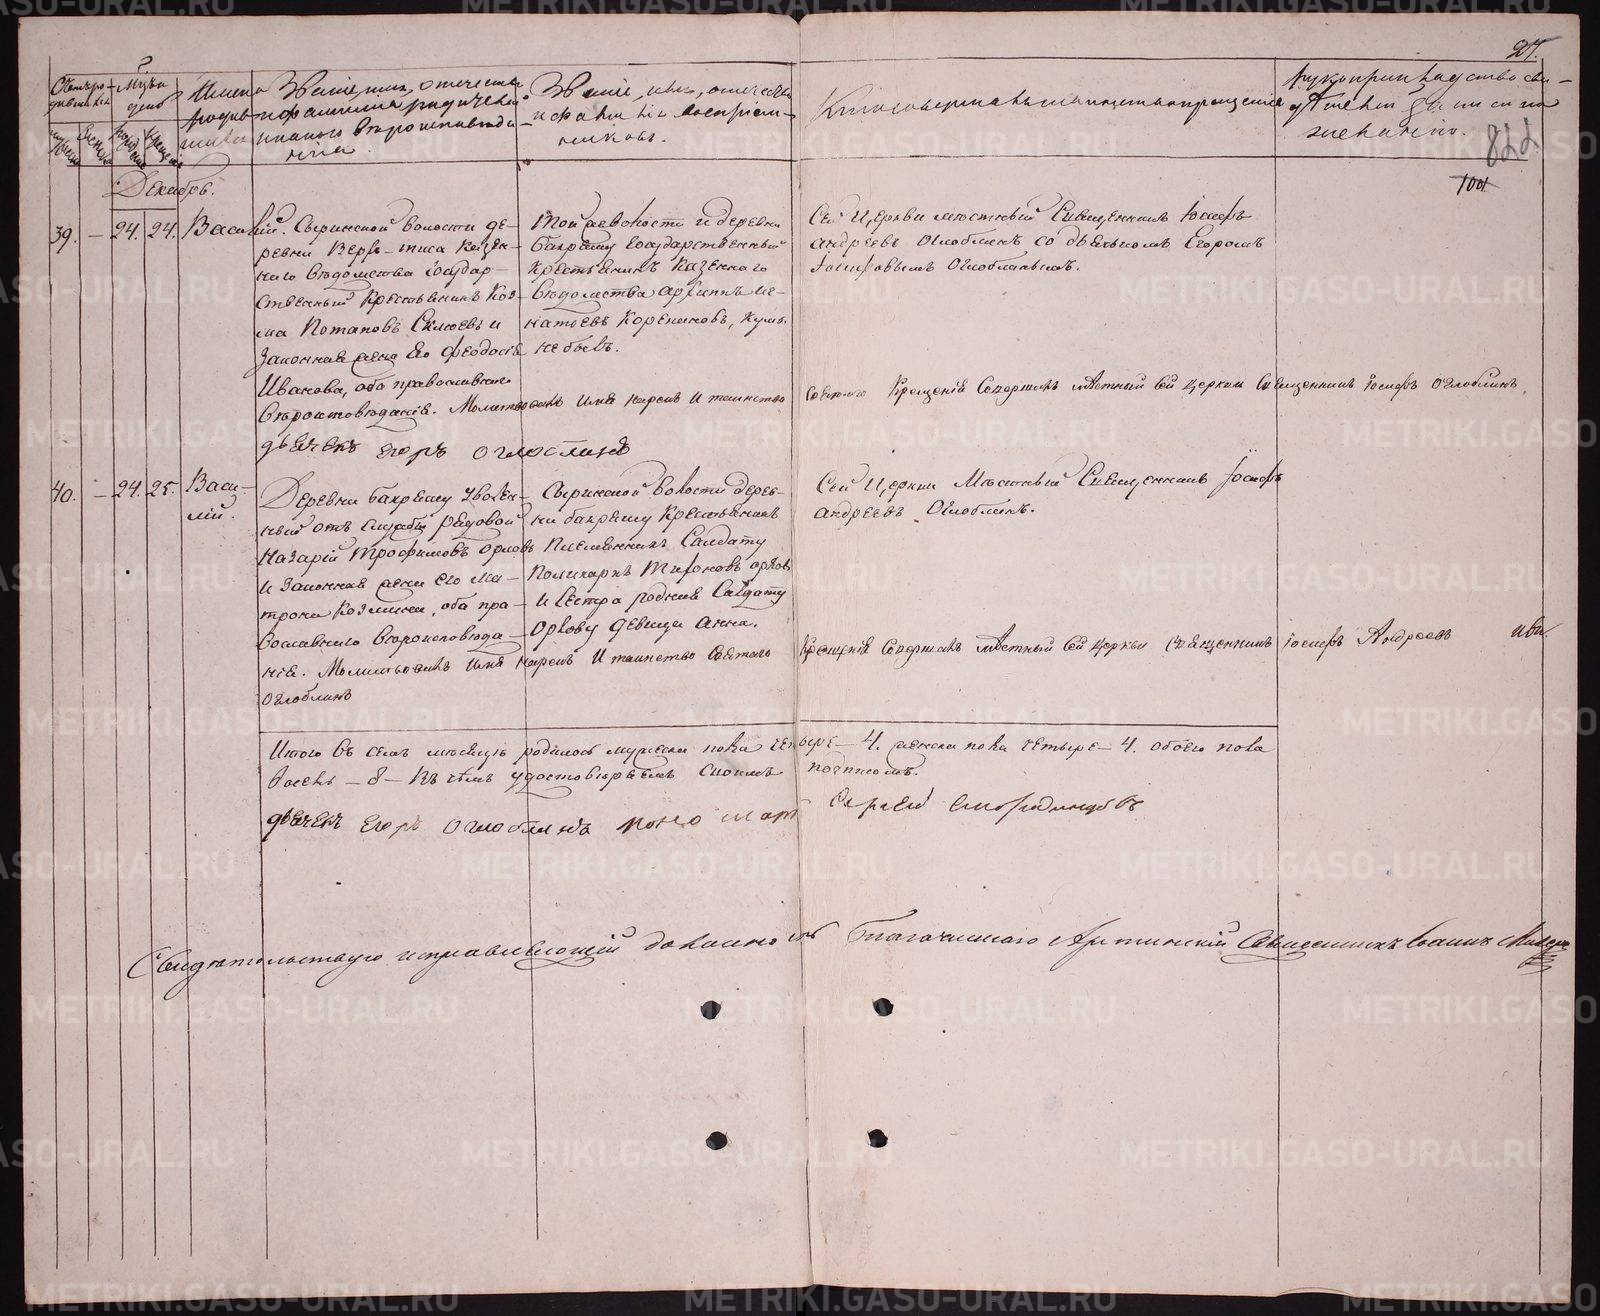 27.
822
100
Счетъ родившихся
Мѣсяцъ и день
Имена родив-
Званіе, имя, отчество
и фамилія родителей
и какого вѣроисповѣда-
нія.
Званіе, имя, отчество
и фамилія воспріем-
никовъ.
Кто совершалъ таинство крещенія
Рукоприкладство сви-
дѣтелей записи по
желанію.
Декабрь.
39. — 24. 24. Василій.
Сыринской волости де-
ревни Верхъ-тиса казен-
наго вѣдомства Государ-
ственный Крестьянинъ Коз-
ма Потаповъ и
Законная жена его Феодосія
Иванова, оба православнаго
вѣроисповѣданія. Молитвовалъ имя нарекъ и таинство
Той же волости и деревни
бакряшу Государственный
Крестьянинъ Казеннаго
вѣдомства Архипъ Иг-
натьевъ Корениновъ, кумы
не бывъ.
Сей Церкви мѣстный Священникъ Іосифъ
Андреевъ Оглоблинъ со дьячкомъ Егоромъ
Іосифовымъ Оглоблинымъ.
Святаго Крещенія Совершалъ мѣстный сей церкви Священникъ Іосифъ Оглоблинъ
дьячекъ Егоръ Оглоблинъ
40. — 24. 25. Васи-
лій.
Деревни бакряшу уволен-
ный отъ службы рядовой
Назарій Трофимовъ Орловъ
и Законная жена его Ма-
трона Козмина, оба пра-
вославнаго вѣроисповѣда-
нія. Молитвовалъ имя нарекъ и таинство Святаго
Сыринской волости дерев-
ни бакряшу Крестьянинъ
Племянникъ Солдату
Поликарпъ Орловъ
и сестра родная Солдату
Орлову девица Анна.
Сей Церкви Мѣстный Священникъ Іосифъ
Андреевъ Оглоблинъ.
Крещенія Совершалъ мѣстный сей церкви Священникъ Іосифъ Андреевъ
Оглоблинъ
Итого въ семъ мѣсяцѣ родилось мужеска пола четыре — 4. женска пола четыре — 4. обоего пола
восемь — 8 — въ чемъ удостовѣряемъ своимъ подписомъ.
дьячекъ Егоръ Оглоблинъ Сергей
Свидѣтельствую исправляющій должность Благочиннаго Артинскій Священникъ Іоаннъ
METRIKI.GASO-URAL.RU